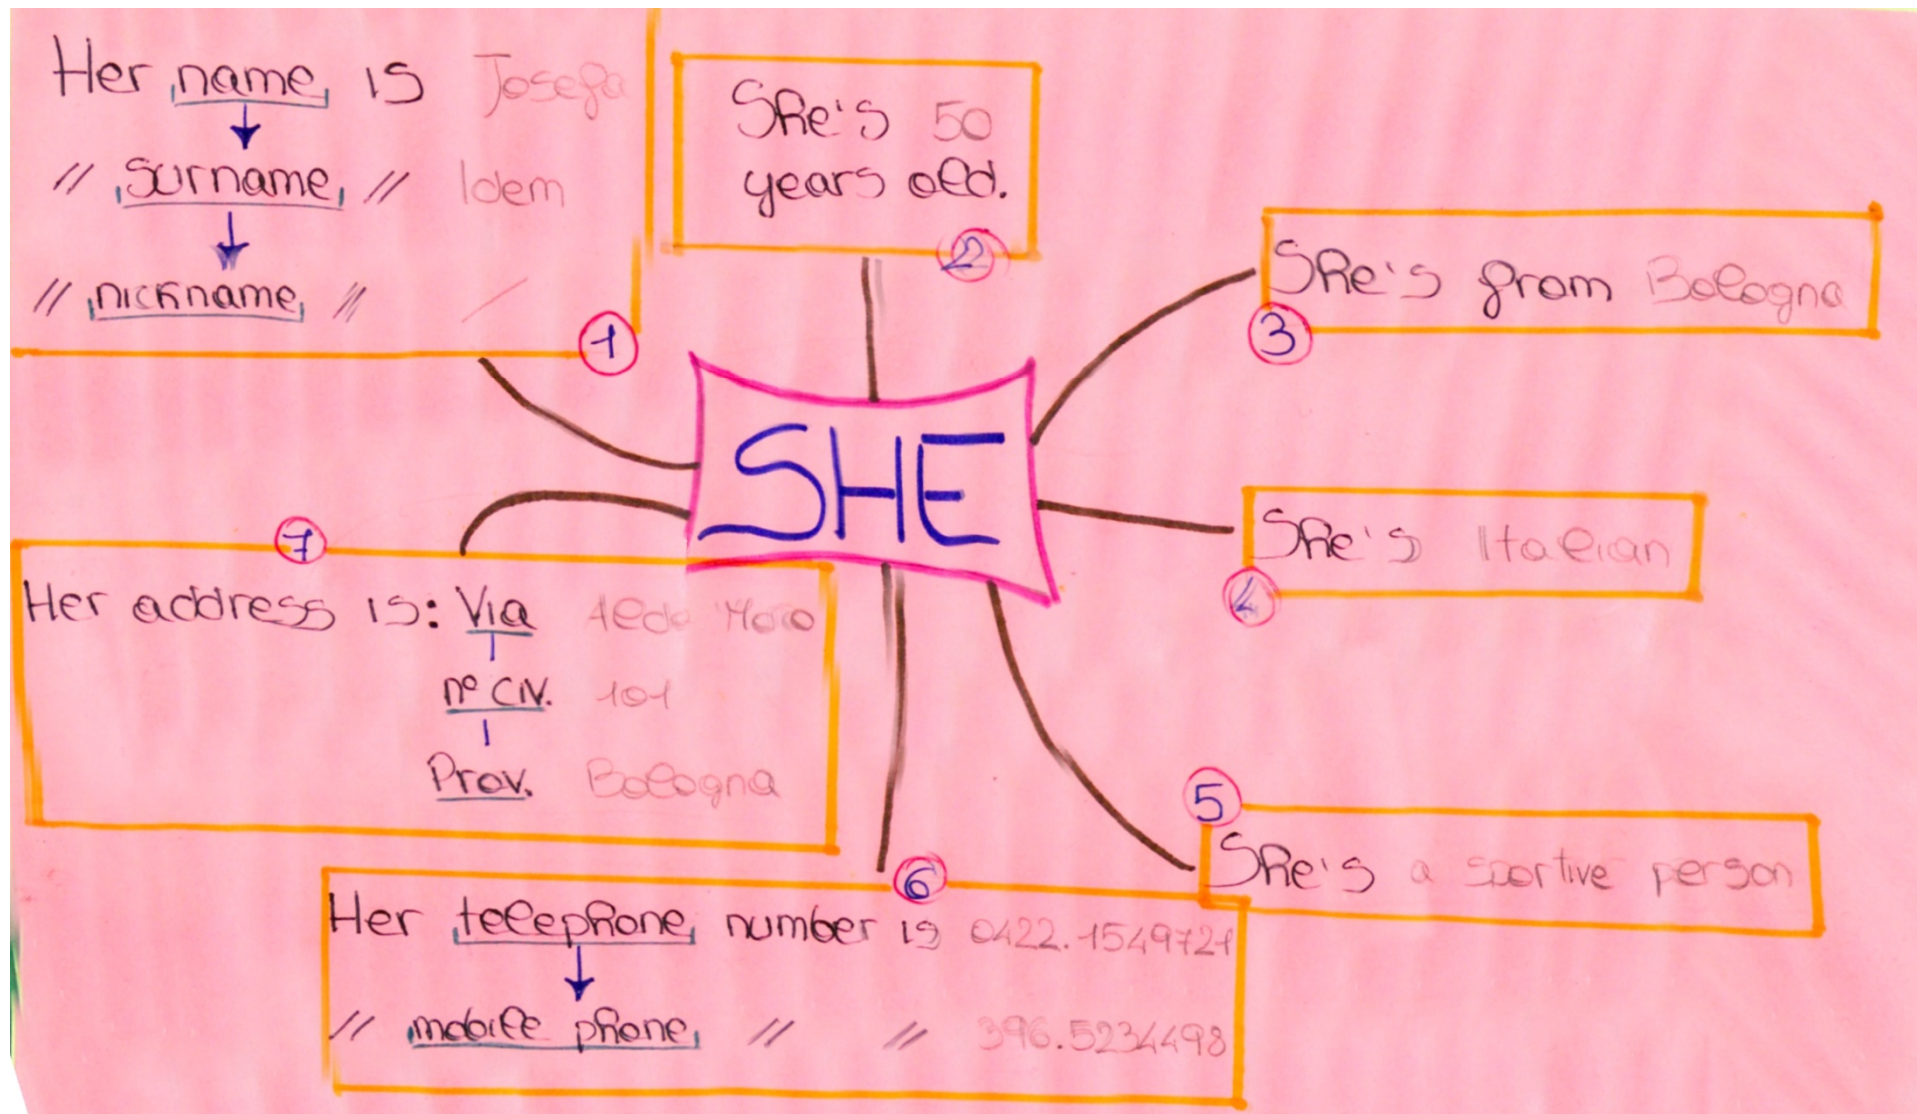 Her name is Josefa
// surname // Idem
// nickname // /
1
She's 50
years old.
2
She's from Bologna
3
SHE
She's Italian
4
5
She's a sportive person
6
Her telephone number is 0422.1549721
// mobile phone // // 396.5234498
7
Her address is: Via Aldo Moro
n° civ. 101
Prov. Bologna